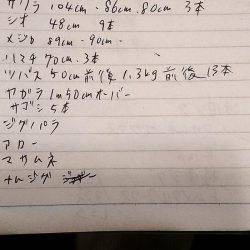 サワラ 104cm・86cm.80cm 3本
シオ 48cm 9本
メジロ 89cm - 90cm -
ハマチ 70cm. 3本
ツバス 50cm前後 1.3kg前後 13本
ヤガラ 1m50cmオーバー
サゴシ 5本
ジグパラ
アロー
マサムネ
ナムジグ